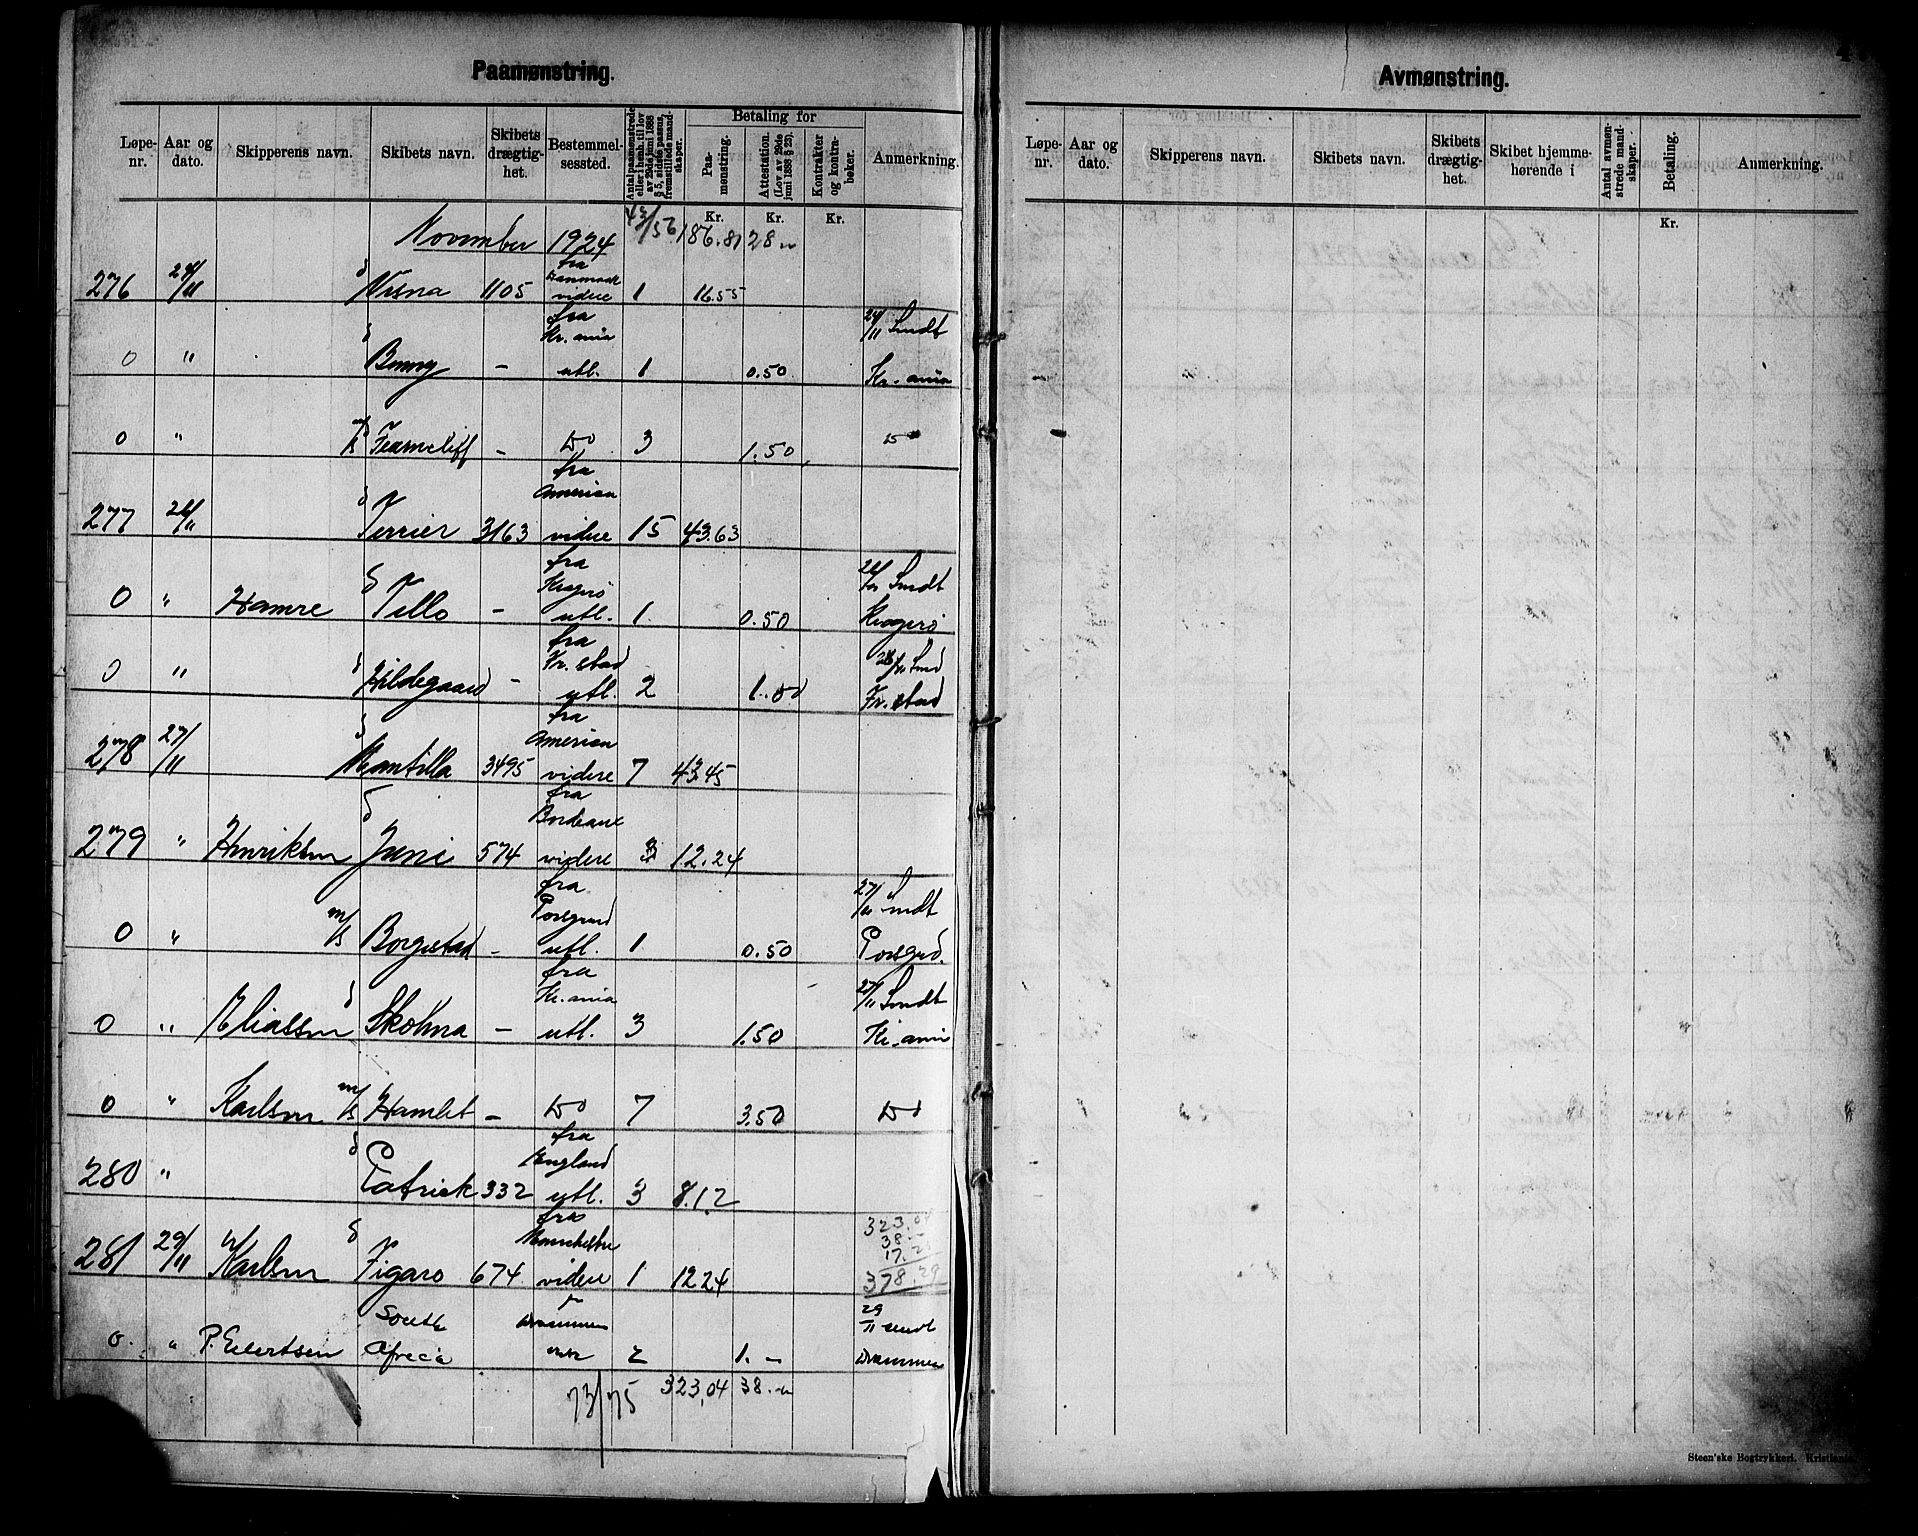 Paamønstring.
Løpe-nr. Aar og dato. Skipperens navn. Skibets navn. Skibets drægtig-het. Bestemmel-sessted. Antal paamønstrede eller i henh. til lov av 29de juni 1888 § 5, sidste passus, fremstillede mand-skaper. Betaling for Paa-mønstring. Attestation. (Lov av 29de juni 1888 § 23). Kontrakter og kontra-bøker. Anmerkning.
Kr. Kr. Kr.
November 1924 43/56 186.81 28.„
fra
Danmark
276 24/11 Visna 1105 videre 1 16.55
fra
Kr.ania 24/11 Sendt
0 " Bonny – utl. 1 0.50 Kr.ania
0 " m/s Fearncliff – Do 3 1.50 Do
fra
America
277 26/11 Terrier 3163 videre 15 43.63
fra
Kragerø 26/11 Sendt
0 " Hamre Tello – utl. 1 0.50 Kragerø
fra
Fr.stad 26/11 Send
0 " Hildegaard – utl. 2 1.00 Fr.stad
fra
America
278 27/11 Mantilla 3495 videre 7 43.45
fra
Bordeaux
279 " Henriksen Juni 574 videre 3 12.24
fra
Porsgrund 27/11 Sendt
0 " m/s Borgestad – utl. 1 0.50 Porsgrd.
fra
Kr.ania 27/11 Sendt
0 " Eliassen Skotma – utl. 3 1.50 Kr.ania
0 " Karlsen m/s Hamlet – Do 7 3.50 Do
fra
England
280 " Patrick 332 utl. 3 8.12
fra 323.04
Manchester 38.–
17.2
281 29/11 Karlsen Figaro 674 videre 1 12 24 378.29
South Drammen 29/11 sendt
0. " P. Eilertsen Africa 2 1.– Drammen
73/75 323,04 38.„
Avmønstring.
Løpe-nr. Aar og dato. Skipperens navn. Skibets navn. Skibets drægtig-het. Skibet hjemme-hørende i Antal avmøn-strede mand-skaper. Betaling. Anmerkning.
Kr.
Steen'ske Bogtrykkeri. Kristiania.